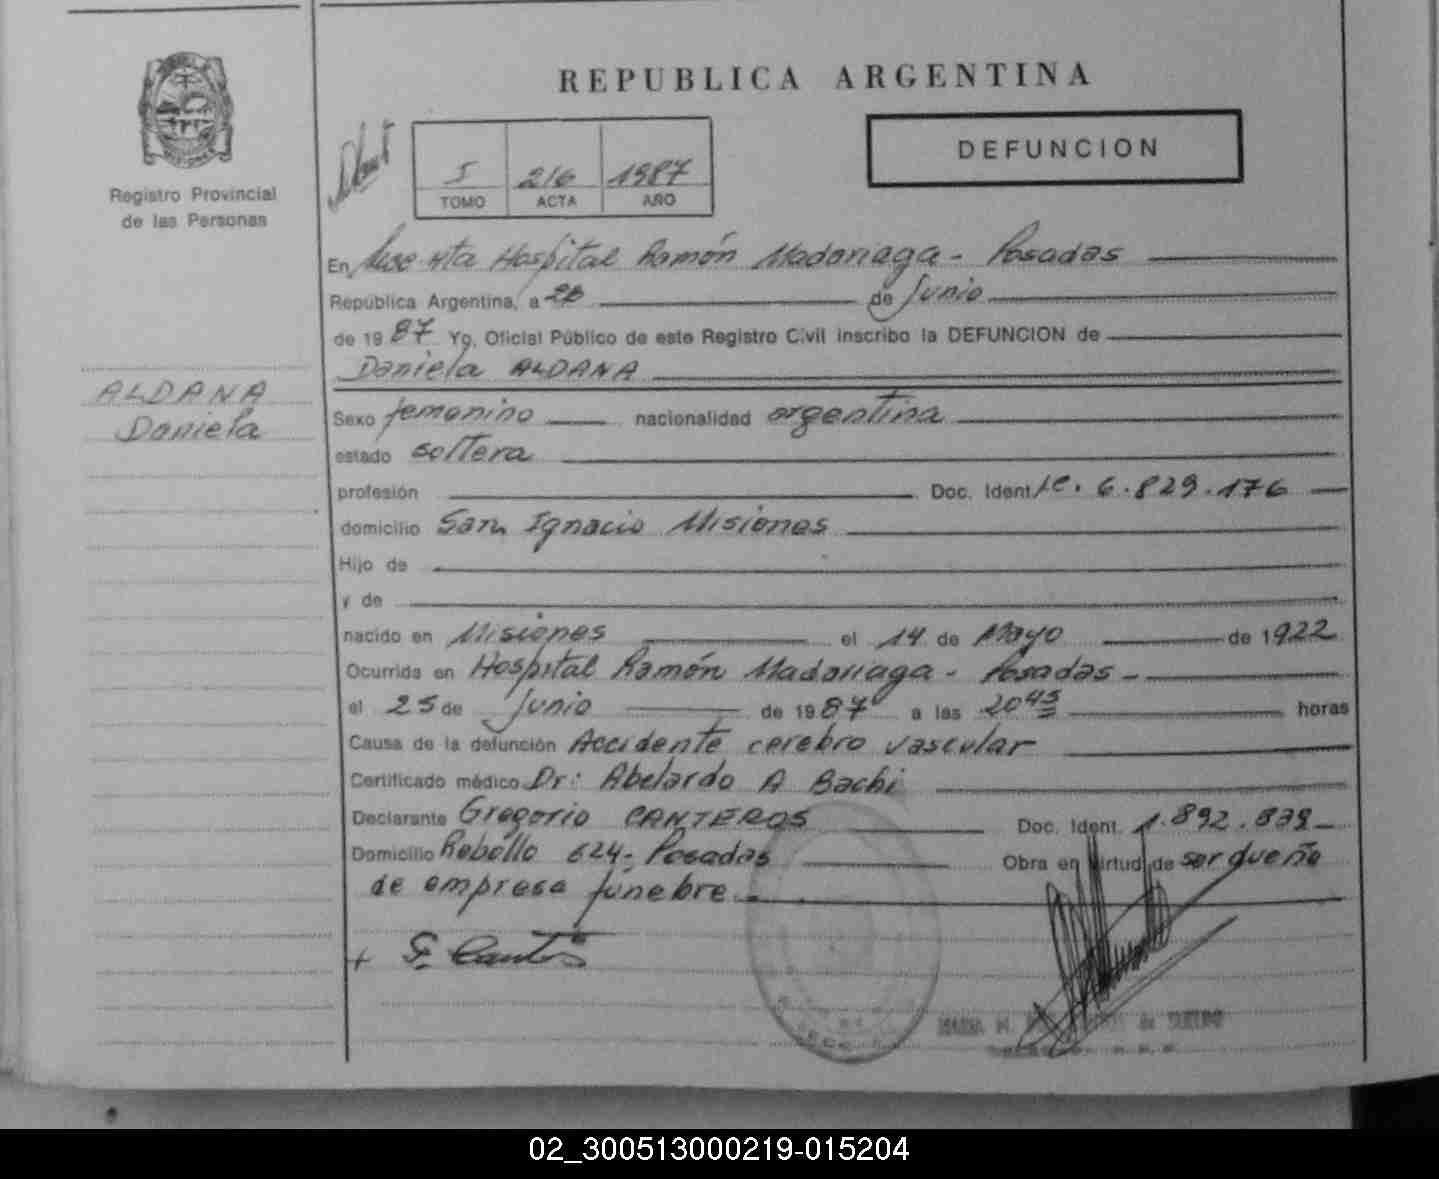 REPUBLICA ARGENTINA
DEFUNCION
Registro Provincial
de las Personas
I 216 1987
TOMO ACTA AÑO
En Hospital Ramón Madariaga - Posadas
República Argentina, a de Junio
de 1987 Yo, Oficial Público de este Registro Civil inscribo la DEFUNCION de
Daniela ALDANA
ALDANA
Daniela
Sexo femenino nacionalidad argentina
estado soltera
profesión Doc. Ident. l.c. 6.829.176
domicilio San Ignacio Misiones
Hijo de
y de
nacido en Misiones el 14 de Mayo de 1922
Ocurrida en Hospital Ramón Madariaga - Posadas -
el 25 de Junio de 1987 a las 20 45 horas
Causa de la defunción Accidente cerebro vascular
Certificado médico Dr: Abelardo A Bachi
Declarante Gregorio CANTEROS Doc. Ident. 1.892.839
Domicilio Rebollo 624- Posadas Obra en virtud de ser dueño
de empresa fúnebre
02_300513000219-015204